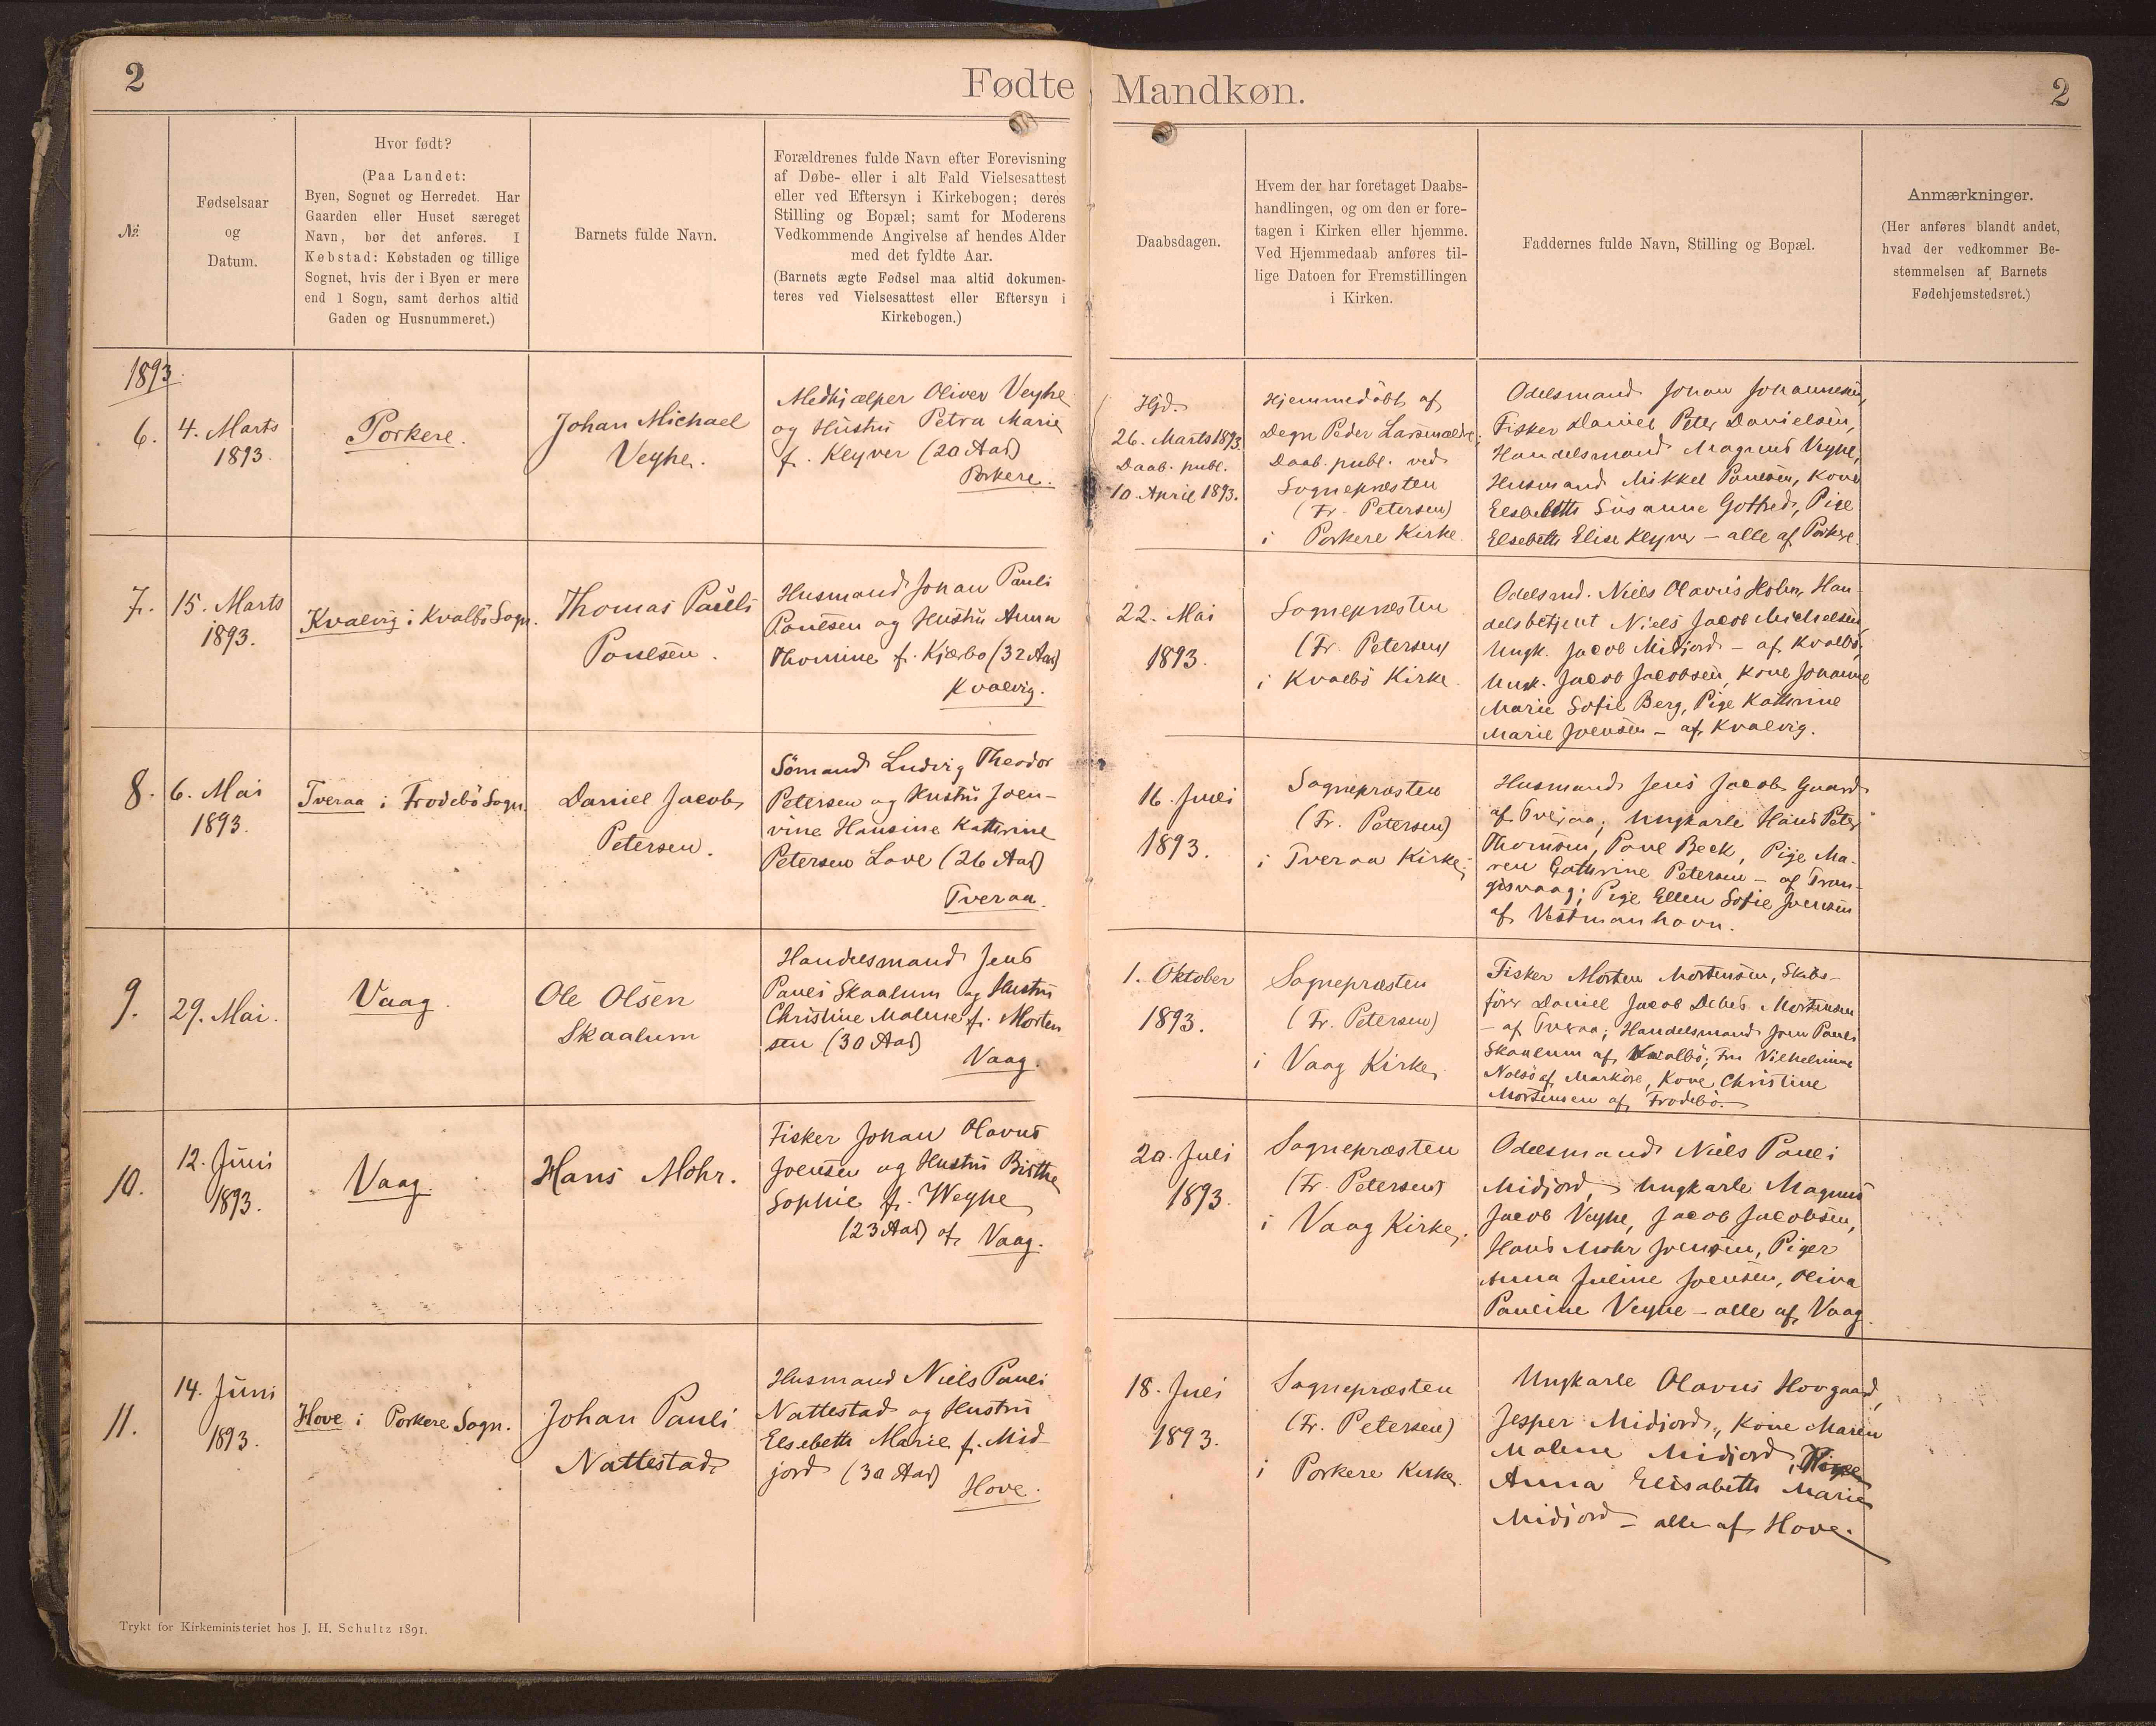 2
Fødte
№
Fødselsaar
og
Datum.
Hvor født?
(Paa Landet:
Byen, Sognet og Herredet. Har
Gaarden eller Huset særeget
Navn, bør det anføres. I
Købstad: Købstaden og tillige
Sognet, hvis der i Byen er mere
end 1 Sogn, samt derhos altid
Gaden og Husnummeret.)
Barnets fulde Navn.
Forældrenes fulde Navn efter Forevisning
af Døbe- eller i alt Fald Vielsesattest
eller ved Eftersyn i Kirkebogen; deres
Stilling og Bopæl; samt for Moderens
Vedkommende Angivelse af hendes Alder
med det fyldte Aar.
(Barnets ægte Fødsel maa altid dokumen-
teres ved Vielsesattest eller Eftersyn i
Kirkebogen.)
1893.
6.
4. Marts
1893.
Porkere.
Johan Michael
Veyhe.
Medhjælper Oliver Veyhe
og Hustru Petra Marie
f. Kleyver (20 Aar)
Porkere.
7.
15. Marts
1893.
Kvalvig i Kvalbö Sogn.
Thomas Pauli
Poulsen.
Husmand Johan Pauli
Poulsen og Hustru Anna
Thomine f. Kjærbo (32 Aar)
Kvalvig.
8.
6. Mai
1893.
Tveraa i Frodebö Sogn.
Daniel Jacob
Petersen.
Sömand Ludvig Theodor
Petersen og Hustru Joen-
vine Hansine Kathrine
Petersen Lave (26 Aar)
Tveraa.
9.
29. Mai.
Vaag.
Ole Olsen
Skaalum
Handelsmand Jens
Pauli Skaalum og Hustru
Christine Malene f. Morten
sen (30 Aar)
Vaag.
10.
12. Juni
1893.
Vaag.
Hans Mohr.
Fisker Johan Olavus
Joensen og Hustru Birthe
Sophie f. Weyhe
(23 Aar) af Vaag.
11.
14. Juni
1893.
Hove i Porkere Sogn.
Johan Pauli
Nattestad
Husmand Niels Pauli
Nattestad og Hustru
Elsebeth Marie f. Mid-
jord (30 Aar)
Hove.
Trykt for Kirkeministeriet hos J. H. Schultz 1891.
Mandkøn.
2
Daabsdagen.
Hvem der har foretaget Daabs-
handlingen, og om den er fore-
tagen i Kirken eller hjemme.
Ved Hjemmedaab anføres til-
lige Datoen for Fremstillingen
i Kirken.
Faddernes fulde Navn, Stilling og Bopæl.
Anmærkninger.
(Her anføres blandt andet,
hvad der vedkommer Be-
stemmelsen af Barnets
Fødehjemstedsret.)
Hjd.
26. Marts 1893.
Daab. publ.
10. April 1893.
Hjemmedöbt af
Degn Peder
Daab. publ. ved
Sognepræsten
(Fr. Petersen)
i Porkere Kirke.
Odelsmand Johan Johannesen,
Fisker Daniel Peter Danielsen,
Handelsmand Magnus Veyhe,
Husmand Mikkel Poulsen, Kone
Elsebeth Susanne Gotfred, Pige
Elsebeth Elise Kleyver – alle af Porkere.
22. Mai
1893.
Sognepræsten
(Fr. Petersen)
i Kvalbö Kirke.
Odelsmd. Niels Olavus Holm, Han-
delsbetjent Niels Jacob Michelsen,
Ungk. Jacob Midjord – af Kvalbö;
Ungk. Jacob Jacobsen, Kone Johanne
Marie Sofie Berg, Pige Kathrine
Marie Joensen – af Kvalvig.
16. Juli
1893.
Sognepræsten
(Fr. Petersen)
i Tveraa Kirke.
Husmand Jens Jacob Gaard
af Tveraa; Ungkarle Hans Peter
Thomsen, Poul Beck, Pige Ma-
ren Cathrine Petersen – af Tran-
gisvaag; Pige Ellen Sofie Joensen
af Vestmanhavn.
1. Oktober
1893.
Sognepræsten
(Fr. Petersen)
i Vaag Kirke.
Fisker Morten Mortensen, Skibs-
förer Daniel Jacob Debes Mortensen
– af Tveraa; Handelsmand Joen Pauli
Skaalum af Kvalbö; Fru Vilhelmine
Nolsö af, Kone Christine
Mortensen af Frodebö.
20. Juli
1893.
Sognepræsten
(Fr. Petersen)
i Vaag Kirke.
Odelsmand Niels Pauli
Midjord, Ungkarle Magnus
Jacob Veyhe, Jacob Jacobsen,
Hans Mohr Joensen, Piger
Anna Juline Joensen, Oliva
Pauline Veyhe – alle af Vaag.
18. Juli
1893.
Sognepræsten
(Fr. Petersen)
i Porkere Kirke.
Ungkarle Olavus Hovgaard,
Jesper Midjord, Kone Maren
Malene Midjord,
Anna Elisabeth Marie
Midjord – alle af Hove.